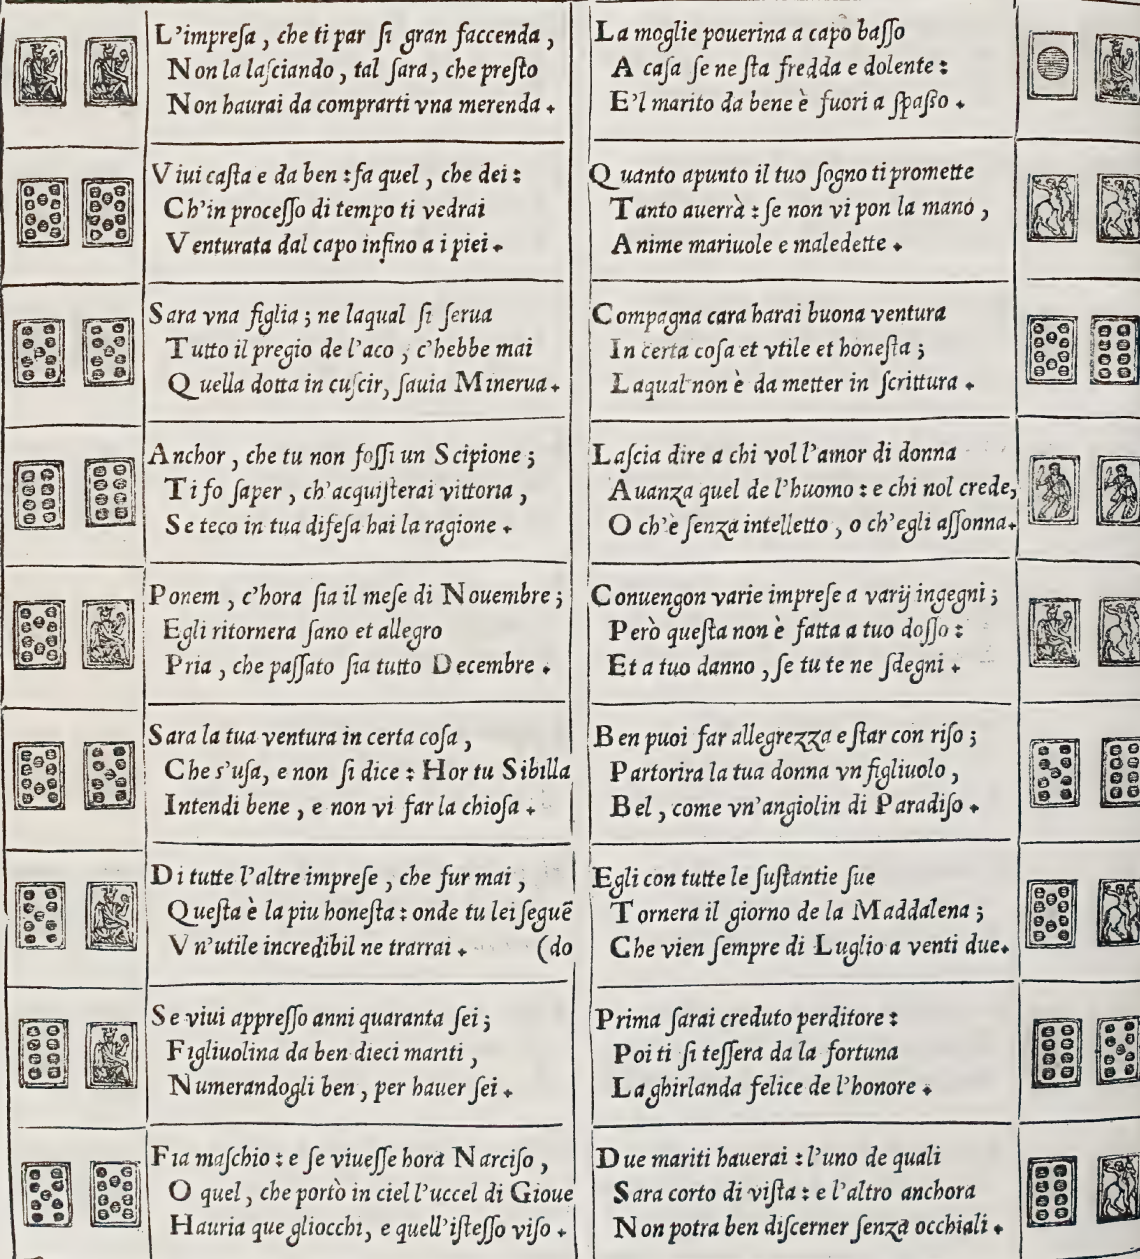 L'impreſa, che ti par ſi gran faccenda,
Non la laſciando, tal ſara, che preſto
Non haurai da comprarti vna merenda.
Viui caſta e da ben: fa quel, che dei:
Ch'in proceſſo di tempo ti vedrai
Venturata dal capo inſino a i piei.
Sara vna figlia; ne laqual ſi ſerua
Tutto il pregio de l'aco, c'hebbe mai
Quella dotta in cuſcir, ſauia Minerua.
Anchor, che tu non foſſi un Scipione;
Ti fo ſaper, ch'acquiſterai vittoria,
Se teco in tua difeſa hai la ragione.
Ponem, c'hora ſia il meſe di Nouembre;
Egli ritornera ſano et allegro
Pria, che paſſato ſia tutto Decembre.
Sara la tua ventura in certa coſa,
Che s'uſa, e non ſi dice: Hor tu Sibilla
Intendi bene, e non vi far la chioſa.
Di tutte l'altre impreſe, che fur mai,
Queſta è la piu honeſta: onde tu lei ſeguē
Vn'utile incredibil ne trarrai. (do
Se viui appreſſo anni quaranta ſei;
Figliuolina da ben dieci mariti,
Numerandogli ben, per hauer ſei.
Fia maſchio: e ſe viueſſe hora Narciſo,
O quel, che portò in ciel l'uccel di Gioue
Hauria que gliocchi, e quell'iſteſſo viſo.
La moglie pouerina a capo baſſo
A caſa ſe ne ſta fredda e dolente:
E'l marito da bene è fuori a ſpaſſo.
Quanto apunto il tuo ſogno ti promette
Tanto auerrà: ſe non vi pon la mano,
Anime mariuole e maledette.
Compagna cara harai buona ventura
In certa coſa et vtile et honeſta;
Laqual non è da metter in ſcrittura.
Laſcia dire a chi vol l'amor di donna
Auanza quel de l'huomo: e chi nol crede,
O ch'è ſenza intelletto, o ch'egli aſſonna.
Conuengon varie impreſe a varij ingegni;
Però queſta non è fatta a tuo doſſo:
Et a tuo danno, ſe tu te ne ſdegni.
Ben puoi far allegrezza e ſtar con riſo;
Partorira la tua donna vn figliuolo,
Bel, come vn'angiolin di Paradiſo.
Egli con tutte le ſuſtantie ſue
Tornera il giorno de la Maddalena;
Che vien ſempre di Luglio a venti due.
Prima ſarai creduto perditore:
Poi ti ſi teſſera da la fortuna
La ghirlanda felice de l'honore.
Due mariti hauerai: l'uno de quali
Sara corto di viſta: e l'altro anchora
Non potra ben diſcerner ſenza occhiali.